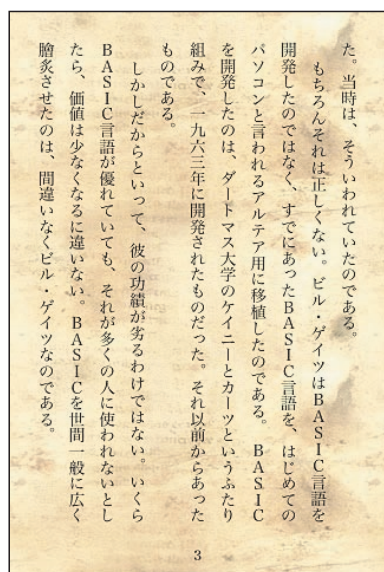 た。当時は、そういわれていたのである。
もちろんそれは正しくない。ビル・ゲイツはBASIC言語を
開発したのではなく、すでにあったBASIC言語を、はじめての
パソコンと言われるアルテア用に移植したのである。BASIC
を開発したのは、ダートマス大学のケイニーとカーツというふたり
組みで、一九六三年に開発されたものだった。それ以前からあった
ものである。
しかしだからといって、彼の功績が劣るわけではない。いくら
BASIC言語が優れていても、それが多くの人に使われないとし
たら、価値は少なくなるに違いない。BASICを世間一般に広く
膾炙させたのは、間違いなくビル・ゲイツなのである。
3